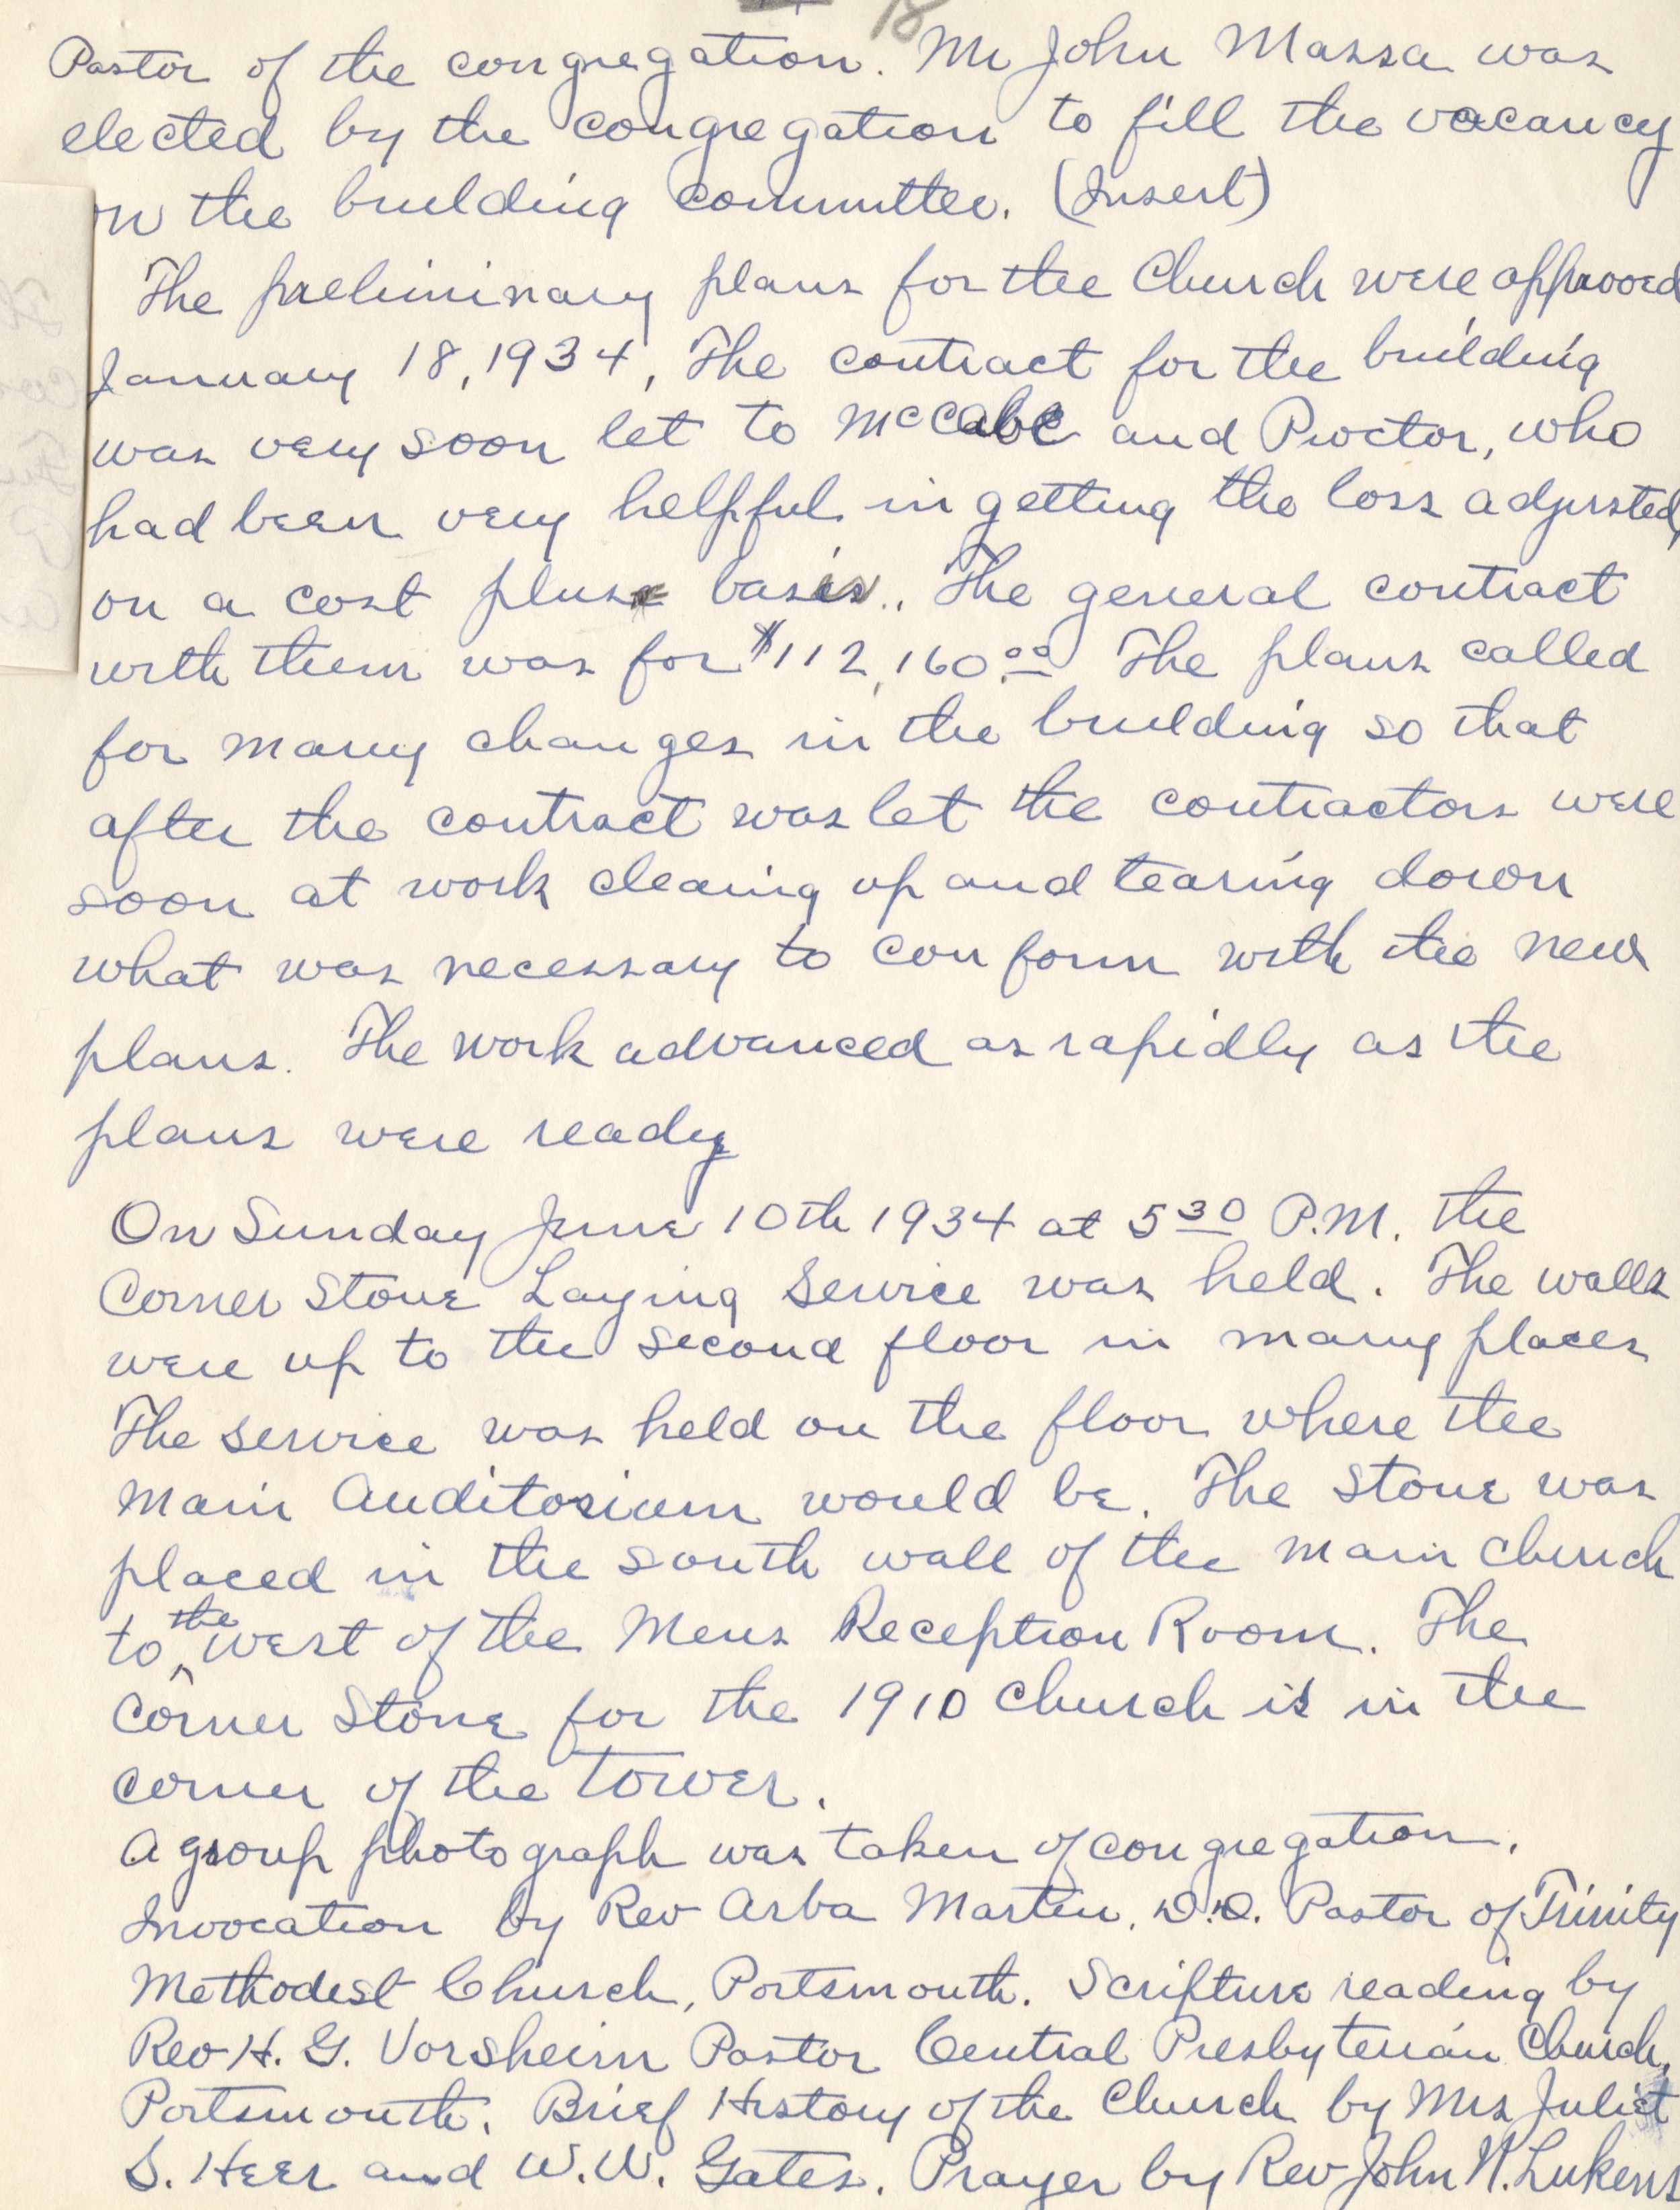 18
Pastor of the congregation. Mr John Massa was
elected by the congregation to fill the vacancy
on the building committee. (Insert)
The preliminary plans for the Church were approved
January 18, 1934, The contract for the building
was very soon let to McCabe and Proctor, who
had been very helpful in getting the loss adjusted,
on a cost plus basis. The general contract
with them was for $112,160.00 The plans called
for many changes in the building so that
after the contract was let the contractors were
soon at work clearing up and tearing down
what was necessary to conform with the new
plans. The work advanced as rapidly as the
plans were ready
On Sunday June 10th 1934 at 5 30 P.M. the
Corner Stone Laying Service was held. The walls
were up to the second floor in many places
The service was held on the floor where the
main Auditorium would be. The Stone was
placed in the south wall of the main church
to the west of the Mens Reception Room. The
Corner Stone for the 1910 Church is in the
corner of the Tower.
A group photograph was taken of congregation.
Invocation by Rev Arba Martin, D.D. Pastor of Trinity
Methodist Church, Portsmouth. Scripture reading by
Rev H. G. Vorsheim Pastor Central Presbyterian Church,
Portsmouth. Brief History of the Church by Mrs Juliet
S. Heer and W. W. Gates. Prayer by Rev John N. Lukens